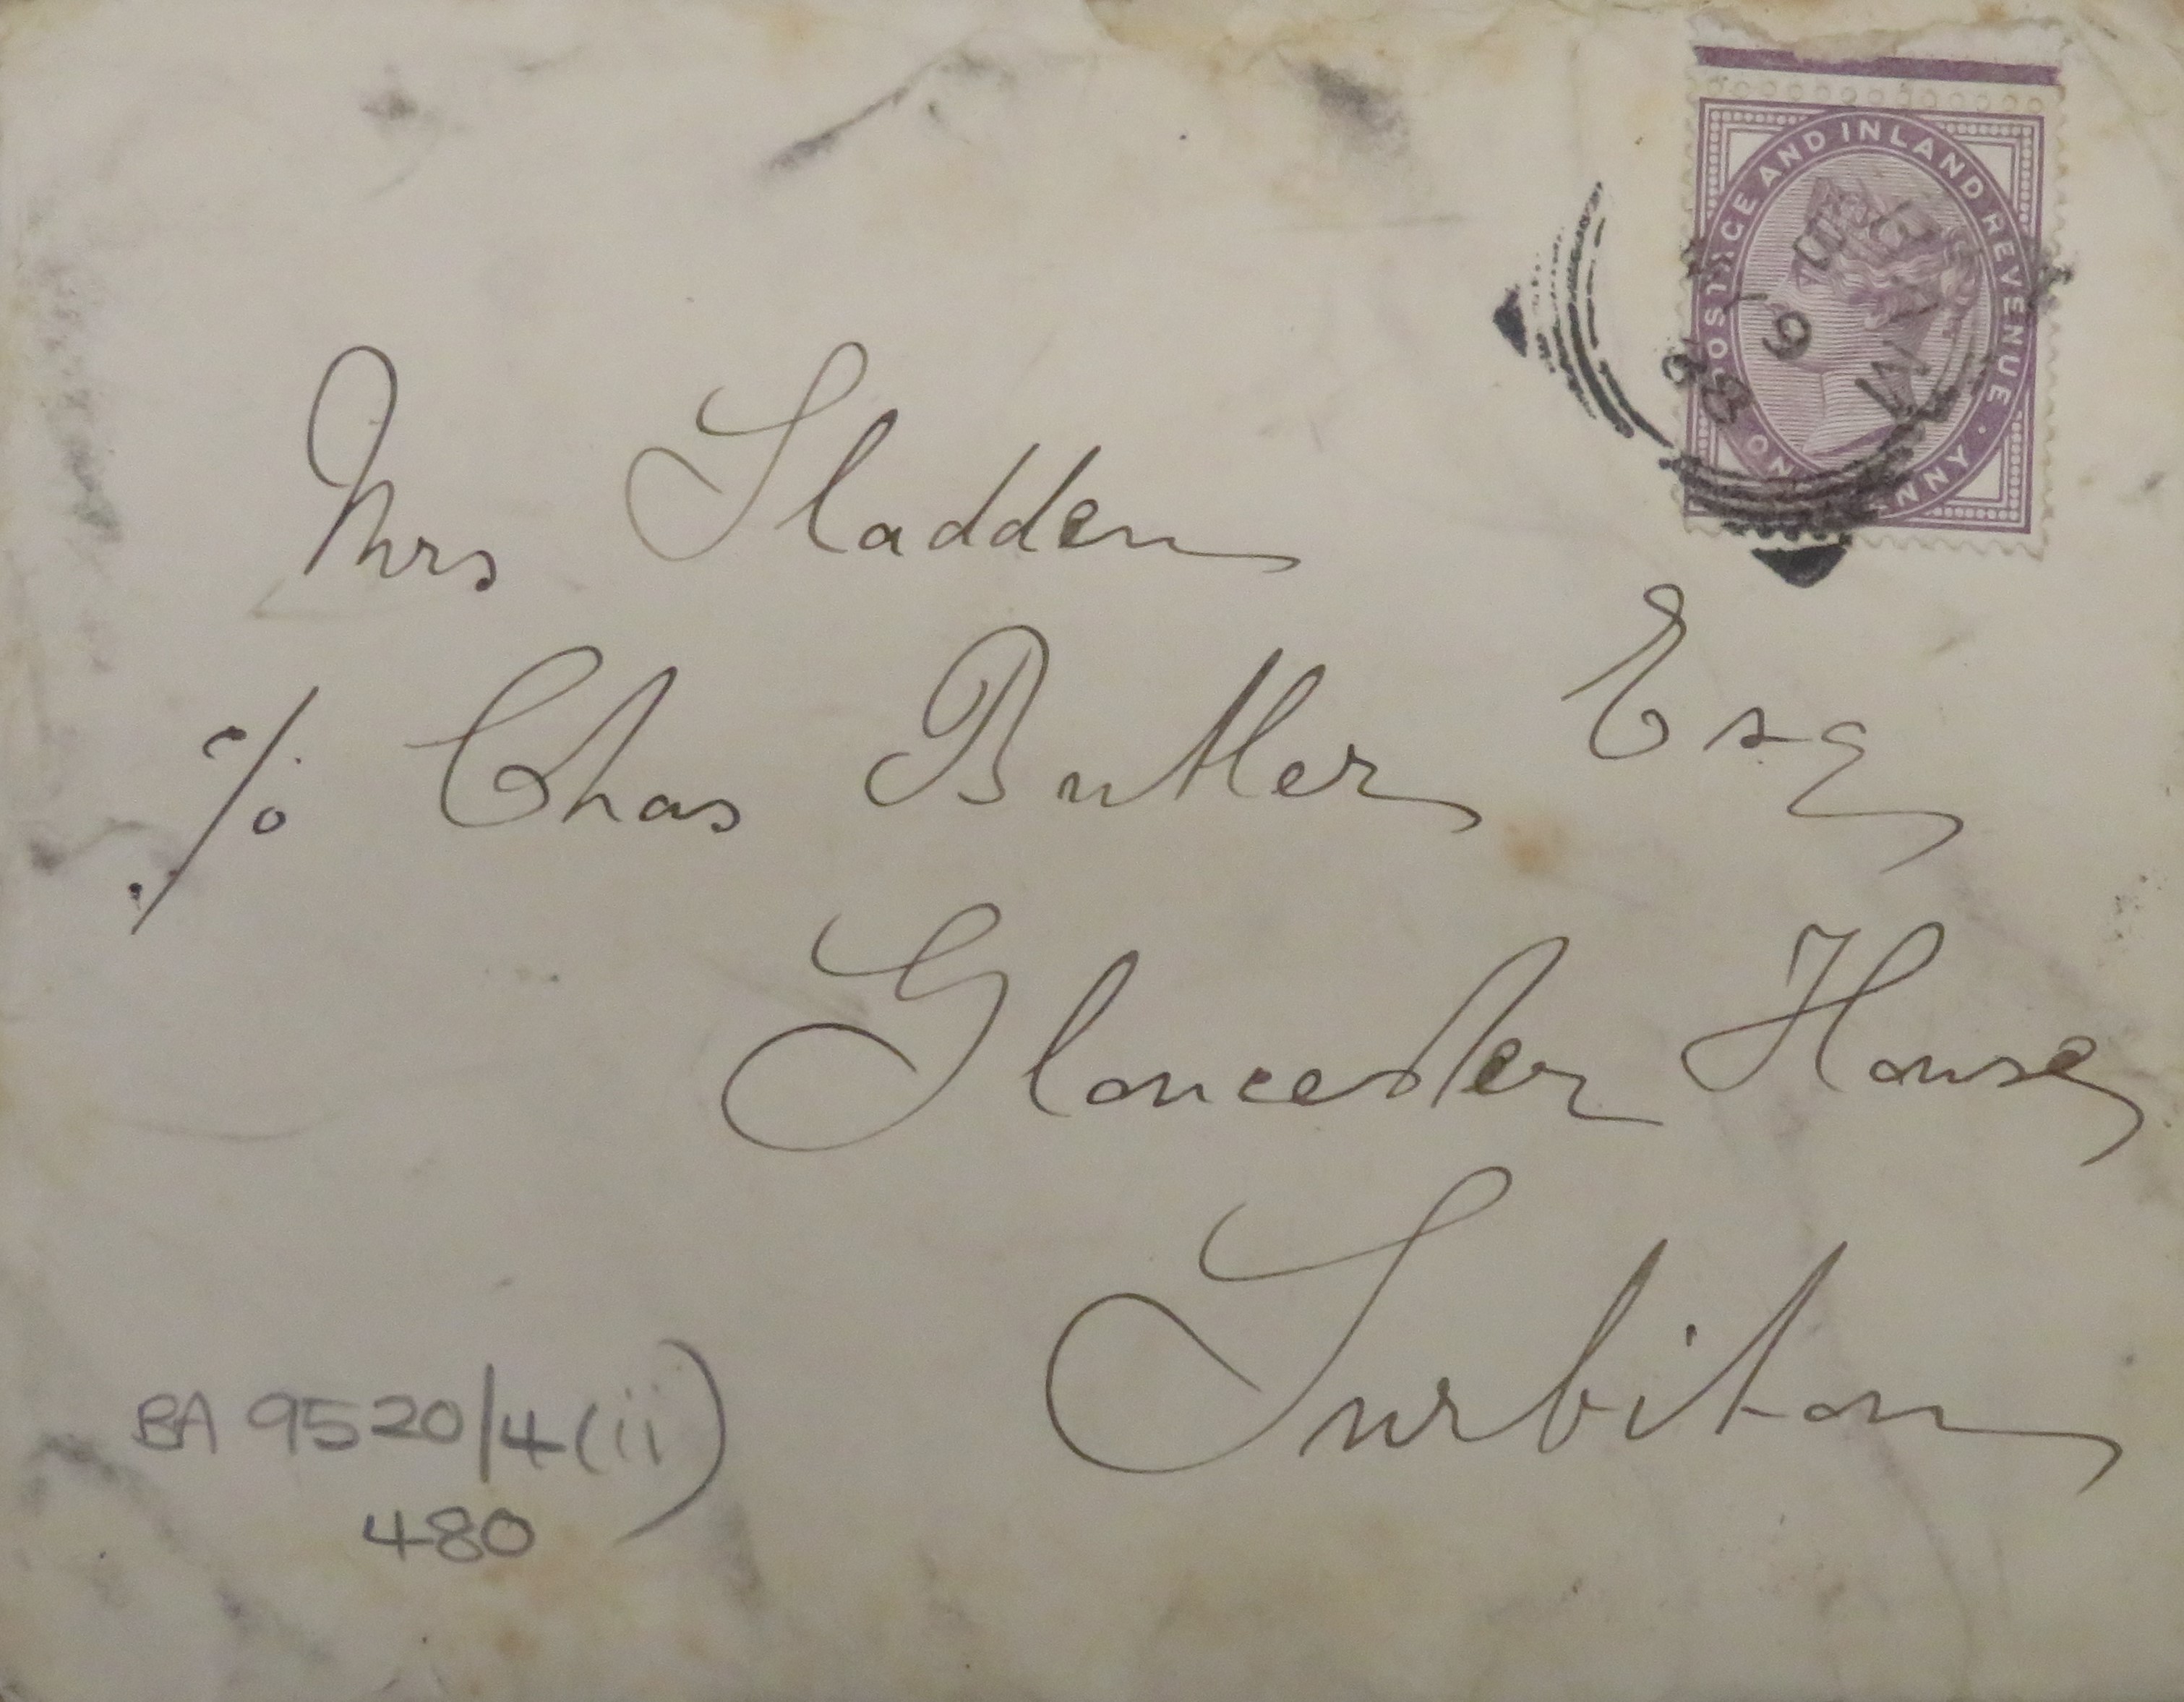 POSTAGE AND INLAND REVENUE · ONE PENNY
9
98
Mrs Sladden
c/o Chas Butler Esq
Gloucester House
Surbiton
BA 9520/4(ii)
480